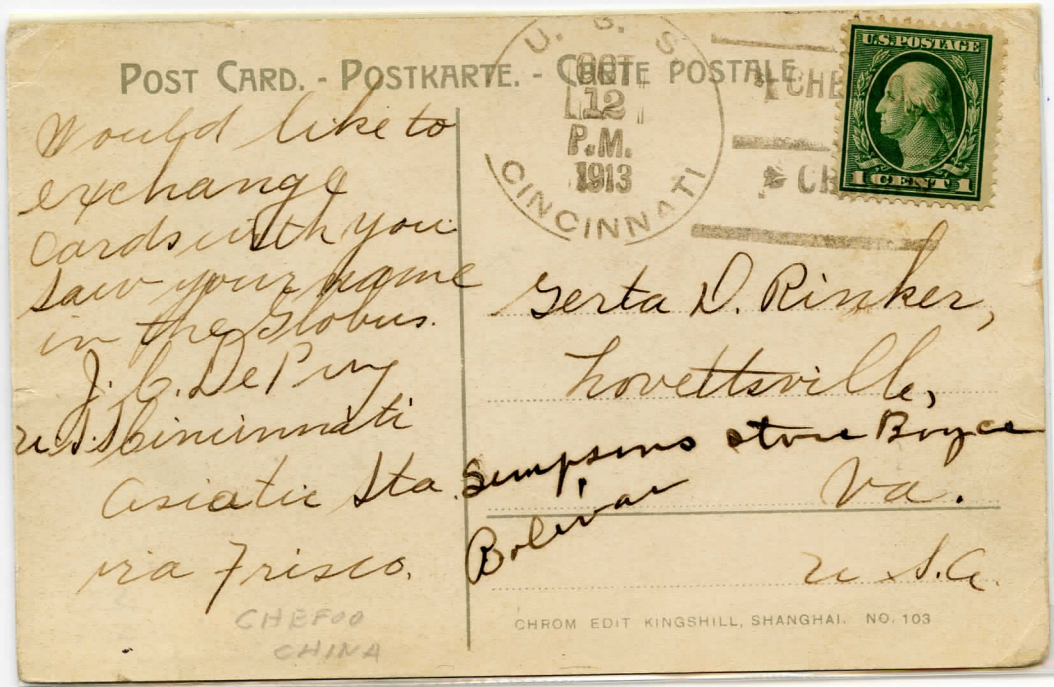 POST CARD. - POSTKARTE. - CARTE POSTALE.
U. S. S.
OCT
12
P.M.
1913
CINCINNATI
CHE
CH
U.S. POSTAGE
1 CENT 1
Would like to
exchange
cards with you
saw your name
in the Globus.
J. C. DePuy
U.S.S. Cincinnati
Asiatic Sta.
via Frisco.
CHEFOO
CHINA
Gerta D. Rinker,
Lovettsville,
Simpsons store Boyce
Va.
Bolivar
U.S.A.
CHROM EDIT KINGSHILL, SHANGHAI. NO. 103